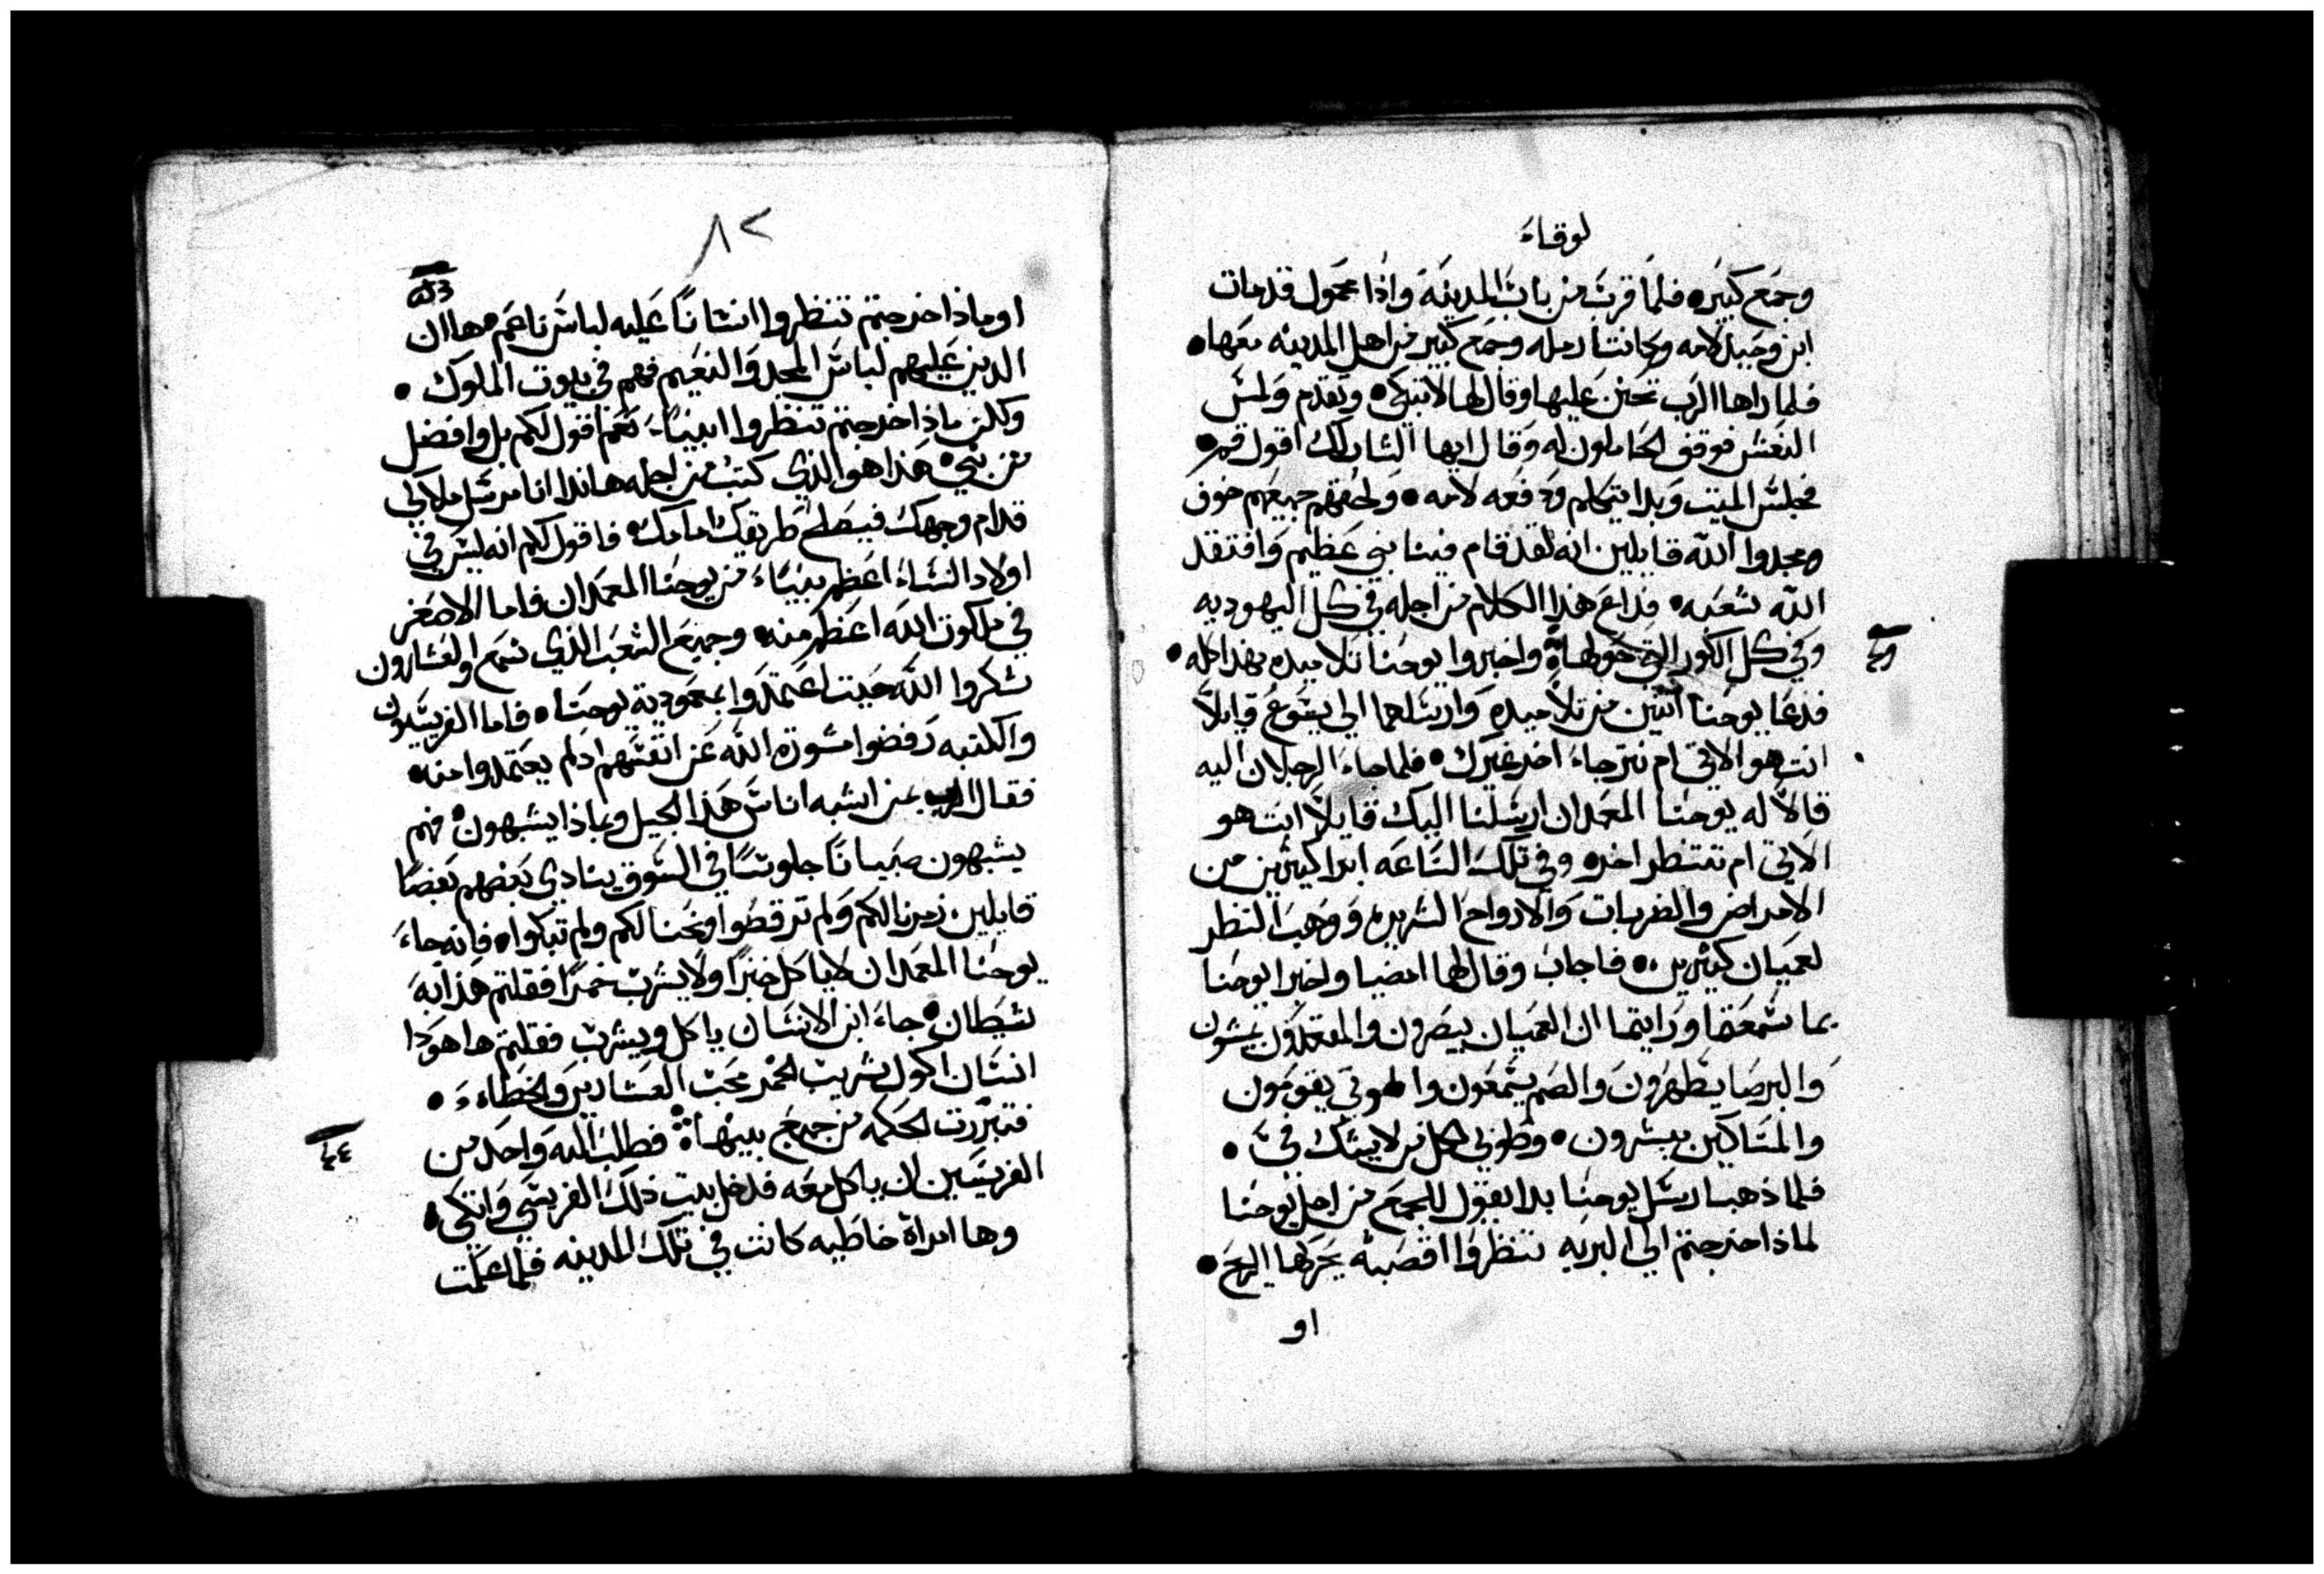 لوقاء
وجمع كبيره فلما قرب من باب المدينة واذا محمول قد مات
ابن وحيد لامه وكانت ارمله وجمع كبير من اهل المدينه معها
فلما راها الرب تحنن عليها وقال لها لا تبكي وتقدم ولمس
النعش فوقف الحاملون له وقال ايها الشاب لك اقول قم
فجلس الميت وبدا يتكلم ودفعه لامه ولحقهم جميعهم خوف
ومجدوا الله قايلين انه لقد قام فينا نبي عظيم وافتقد
الله شعبه فذاع هذا الكلام من اجله في كل اليهوديه
وفي كل الكور التي حولها واخبروا يوحنا تلاميده بهذا كله
فدعا يوحنا اثنين من تلاميده وارسلهما الي يسوع قايلا
انت هو الاتي ام نترجاء اخر غيرك فلما جاء الرجلان اليه
قالا له يوحنا المعمدان ارسلنا اليك قايلا انت هو
الاتي ام ننتظر اخر وفي تلك الساعه ابرا كثيرين من
الامراض والضربات والارواح الشريره ووهب النظر
لعميان كثيرين فاجاب وقال لهما امضيا واخبرا يوحنا
بما سمعتما ورايتما ان العميان يبصرون والمقعدون يمشون
والبرصا يطهرون والصم يسمعون والموتي يقومون
والمساكين يبشرون وطوبي لكل من لا يشك في
فلما ذهبا رسل يوحنا بدا يقول للجمع من اجل يوحنا
لماذا خرجتم الي البريه تنظروا اقصبة يحركها الريح
او
٨٢
او ماذا خرجتم تنظروا انسانا عليه لباس ناعم ها ان
الدين عليهم لباس المجد والنعيم فهم في بيوت الملوك
ولكن ماذا خرجتم تنظروا انبياء نعم اقول لكم بل وافضل
من نبي هذا هو الذي كتب من اجله هاندا انا مرسل ملاكي
قدام وجهك فيصلح طريقك امامك فاقول لكم انه ليس في
اولاد النساء اعظم نبياء من يوحنا المعمدان فاما الاصغر
في ملكوت الله اعظم منه وجميع الشعب الذي سمع والعشارون
شكروا الله حيت اعتمدوا بمعمودية يوحنا فاما الفريسيون
والكتبه رفضوا مشورة الله عن انفسهم اد لم يعتمدوا منه
فقال الرب بمن اشبه اناس هذا الجيل وبماذا يشبهون فهم
يشبهون صبيانا جلوسا في السوق ينادي بعضهم بعضا
قايلين زمرنا لكم ولم ترقصوا ونحنا لكم ولم تبكوا فانه جاء
يوحنا المعمدان لا ياكل خبزا ولا يشرب خمرا فقلتم هذا به
شيطان جاء ابن الانسان ياكل ويشرب فقلتم ها هودا
انسان اكول شريب الخمر محب العشارين والخطاء
فتبررت الحكمه من جميع بنيها فطلب اليه واحد من
الفريسيين ان ياكل معه فدخل بيت ذلك الفريسي واتكي
وها امراة خاطيه كانت في تلك المدينه فلما علمت